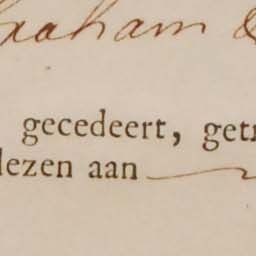 raham &
gecedeert, getr
lezen aan